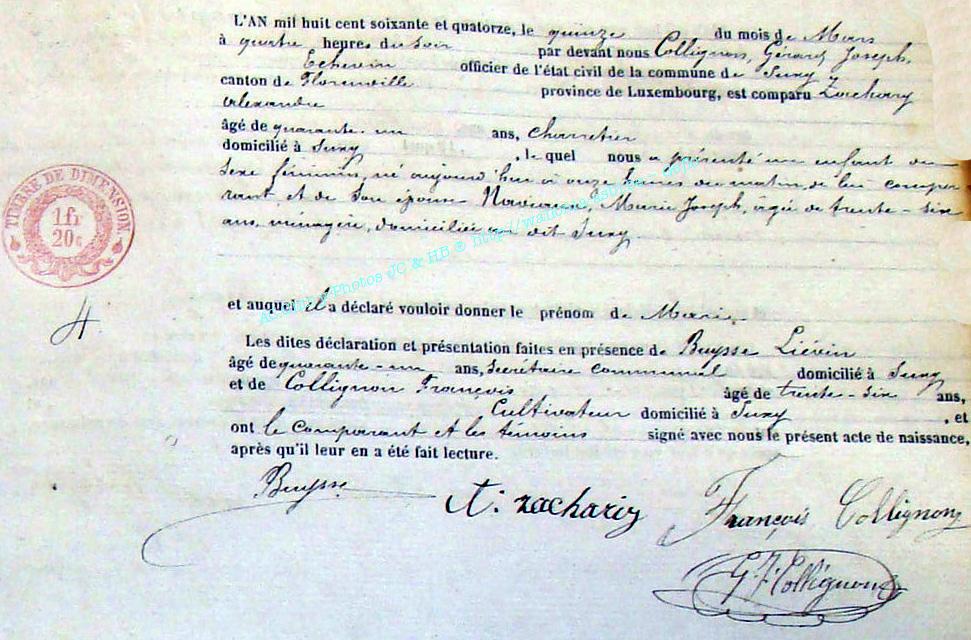 L'AN mil huit cent soixante et quatorze, le quinze du mois de Mars
à quatre heures du soir par devant nous Collignon, Gérard Joseph,
Echevin officier de l'état civil de la commune de Suxy
canton de Florenville province de Luxembourg, est comparu Zachary
Alexandre
âgé de quarante-un ans, Charretier
domicilié à Suxy , lequel nous a présenté un enfant du
sexe féminin, né aujourd'hui à onze heures du matin, de lui compa-
rant et de son épouse Marie Joseph, âgée de trente-six
ans, ménagère, domiciliée au dit Suxy
TIMBRE DE DIMENSION.
1 fr
20 c
4
et auquel il a déclaré vouloir donner le prénom de Marie.
Les dites déclaration et présentation faites en présence de Buysse Liévin
âgé de quarante-un ans, Secrétaire communal domicilié à Suxy
et de Collignon François âgé de trente-six ans,
Cultivateur domicilié à Suxy , et
ont le Comparant et les témoins signé avec nous le présent acte de naissance,
après qu'il leur en a été fait lecture.
Buysse A. Zachariy François Collignon
G. J. Collignon
Photos JC & HB ® http://